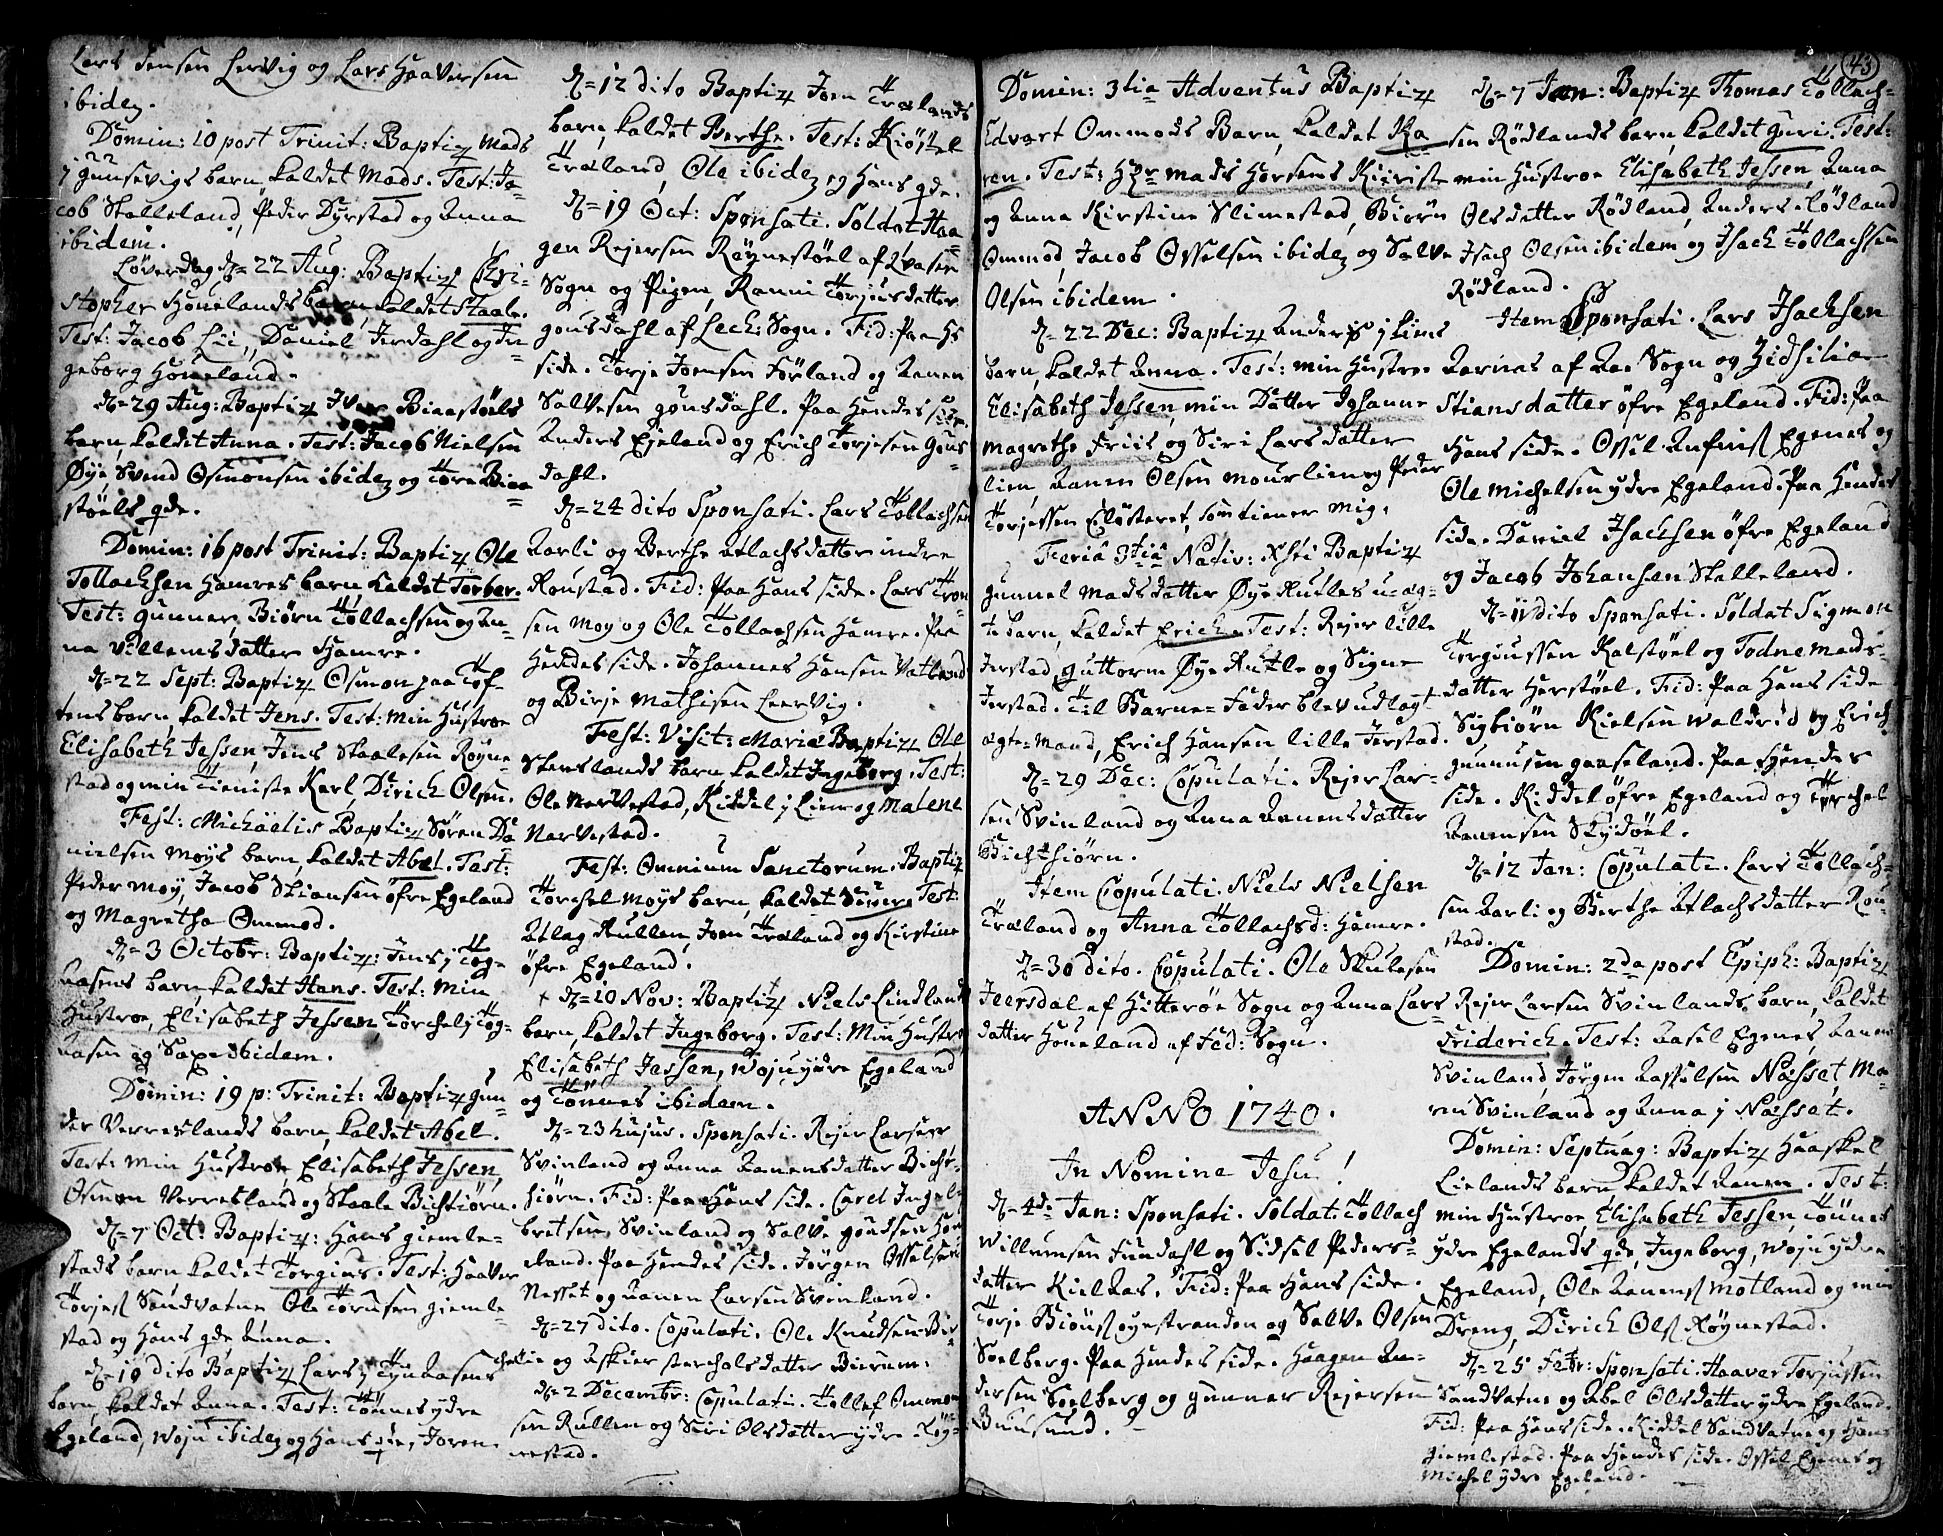 Lars Jensen Lervig og Lars Haaversen
ibidem.
Domin: 10 post Trinit: Baptiz Mads
i Gunsevigs barn, kaldet Mads. Test: Ja-
cob Stalleland, Peder Dyrstad og Anna
ibidem.
Løverdag d= 22 Aug: Baptiz Chri-
stopher Hønelands barn kaldet Staale.
Test: Jacob Lii, Daniel Jerdahl og In-
geborg Høneland.
d= 29 Aug: Baptiz Iver Biaastøels
barn, kaldet Anna. Test: Jacob Nielsen
Øye Svend Osmonsen ibidem og Tore Biaa-
støels qde.
Domin: 16 post Trinit: Baptiz Ole
Tollachsen Hamres barn, kaldet Torber.
Test: Gunner, Biørn Tollachsen og An-
na Villemsdatter Hamre.
d= 22 Sept: Baptiz Osmon paa Tof-
tens barn, kaldet Jens. Test: Min Hustroe
Elisabeth Jessen, Jens Staalesen Røyne-
stad og min tieniste Karl, Dirich Olsen.
Fest: Michäelis Baptiz Søren Da-
nielsen Moys barn, kaldet Abel. Test:
Peder Moy, Jacob Stiansen øfre Egeland
og Magretha Ommod.
d= 3 Octobr: Baptiz: Jens i Tog-
aasens barn kaldet Hans. Test: Min
Hustroe, Elisabeth Jessen Torchel i Tog-
aasen og Saxe ibidem.
Domin: 19 p: Trinit: Baptiz Gun-
der Verreslands barn, kaldet Abel.
Test: Min Hustroe, Elisabeth Jessen,
Osmon Verresland og Staale Bichtiørn.
d= 7 Oct: Baptiz: Hans Giemle-
stads barn kaldet Torgius. Test: Haaver
Torjes Sandvatne Ole Torusen Giemle
stad og Hans qde Anna.
d= 10 dito Baptiz Lars i Tynaasens
barn, kaldet Anna. Test: Tønnes ydre
Egeland, Woju ibidem og Hans qde, Joren
d= 12 dito Baptiz Joen Trælands
barn, kaldet Berthe. Test: Kiøstel
Træland, Ole ibidem og Hans qde.
d= 19 Oct: Sponsati. Soldat Haa-
gen Rejersen Røynestøel af Qvasen
Sogn og Pigen, Ranni Torjusdatter
Gousdahl af Lech: Sogn. Fid: Paa Hs
side. Torje Joensen Førland og Aanen
Salvesen Gousdahl. Paa Hendes side
Anders Ejeland og Erich Torjesen Gous-
dahl.
d= 24 dito Sponsati. Lars Tollachsen
Aarli og Berthe Atlachsdatter indre
Roustad. Fid: Paa Hans side. Lars Tron
sen Moy og Ole Tollachsen Hamre. Paa
Hendes side. Johannes Hansen Vatland
og Birje Mathisen Leervig.
Fest: Visit: Mariæ Baptiz Ole
Steenslands barn, kaldet Ingeborg. Test:
Ole Narvestad, Kiddel i Lien og Malene
Narvestad.
Fest: Omnium Sanctorum. Baptiz
Torchel Moys barn, kaldet Siver. Test:
Atlag Rullen, Joen Træland og Kirstine
øfre Egeland.
d= 20 Nov: Baptiz Niels Lindlands
barn, kaldet Ingeborg. Test: Min Hustro
Elisabeth Jessen, Woju ydre Egeland
og Tønnes ibidem.
d= 23 hujus. Sponsati. Rejer Larsen
Svinland og Anna Aanensdatter Bicht-
tiørn. Fid: Paa Hans side. Carel Ingel-
bretsen Svinland og Salve Goudsen Høn
eland. Paa Hendes side. Jørgen Osselsen
Nesset og Aanen Larsen Svinland.
d= 27 dito. Copulati. Ole Knudsen Bir-
chelie og Askier Stercholsdatter Bierum.
d= 2 Decembr: Copulati. Tollef Ommon
sen Rullen og Siri Olsdatter ydre Røy-
nestad.
Domin: 3tia Adventus Baptiz
Edvart Ommods Barn, kaldet Ka
ren. Test: Hr Mads Horsens Kiæriste
og Anna Kirstine Slimestad, Biørn
Ommod, Jacob Osselsen ibidem og Salve
Olsen ibidem.
d= 22 Dec: Baptiz Anders i Liens
barn, kaldet Anna. Test: Min Hustroe
Elisabeth Jessen, min Datter Johanne
Magrethe Friis og Siri Larsdatter
lien, Aanen Olsen Mourlien og Peder
Torjessen Clösteret, som tiener mig.
Feria 3tia Nativ: Xsti Baptiz
Gunnel Madsdatter Øye Rutles u-æg-
te barn, kaldet Erich. Test: Rejer lille
Jerstad, Guttorm Øye Rutle og Signe
Jerstad. Til Barne-Fader blev udlagt
ægte-Mand, Erich Hansen lille Jerstad.
d= 29 Dec: Copulati. Rejer Lar-
sen Svinland og Anna Aanensdatter
Bichtiørn.
Item Copulati. Niels Nielsen
Træland og Anna Tollachsd: Hamre.
d= 30 dito. Copulati. Ole Skulesen
Jeersdal af Hitterøe Sogn og Anna Lars-
datter Høueland af Fed: Sogn.
ANNO 1740.
In Nomine Jesu!
d= 4de Jan: Sponsati. Soldat Tollach
Willumsen Fundahl og Sidsel Peders-
datter Kielaas. Fid: Paa Hans side.
Torje Biøns Øyestranden og Salve Olsen
Soelberg. Paa Hendes side. Haagen An-
dersen Soelberg og Gunner Rejersen
Buusund.
43
d= 7 Jan: Baptiz Thomas Tollach-
sen Rødlands barn, kaldet Guri. Test:
min Hustroe Elisabeth Jessen, Anna
Olsdatter Rødland, Anders Rødland
Isach Olsen ibidem og Isach Tollachsen
Rødland.
Item Sponsati. Lars Isachsen
Aarnes af Aae Sogn og Zidsilia
Stiansdatter øfre Egeland. Fid: Paa
Hans side. Ossil Aasins Egenes og
Ole Michelsen ydre Egeland. Paa Hendes
side. Daniel Isachsen øfre Egeland
og Jacob Johansen Stalleland.
d= 11 dito Sponsati. Soldat Sigmon
Torgiussen Kalstøel og Todne Mads-
datter Herstøel. Fid: Paa Hans side
Sigbiørn Kielsen Waldrød og Erich
Gunnusen Gaaseland. Paa Hendes
side. Kiddel øfre Egeland og Torchel
Aanensen Skydøel.
d= 12 Jan: Copulati. Lars Tollach-
sen Aarli og Berthe Atlachsdatter Rou-
stad.
Domin: 2da post Epiph: Baptiz
Rejer Larsen Svinlands barn, kaldet
Friderich. Test: Aasel Egenes, Aanen
Svinland, Jørgen Aasulsen Næsset, Ma-
ren Svinland og Anna i Næsset.
Domin: Septuag: Baptiz Haaskel
Lielands barn, kaldet Aanen. Test:
min Hustroe, Elisabeth Jessen, Tønnes
ydre Egelands qde, Ingeborg, Woju ydre
Egeland, Ole Aanens Motland og min
Dreng, Dirich Ols Røynestad.
d= 25 Febr: Sponsati. Haaver Torjussen
Sandvatne og Abel Olsdatter ydre Egeland.
Fid: Paa Hans side. Kiddel Sandvatne og Hans
Giemlestad. Paa Hendes side. Ossel Egenes og
Michel ydre Egeland.